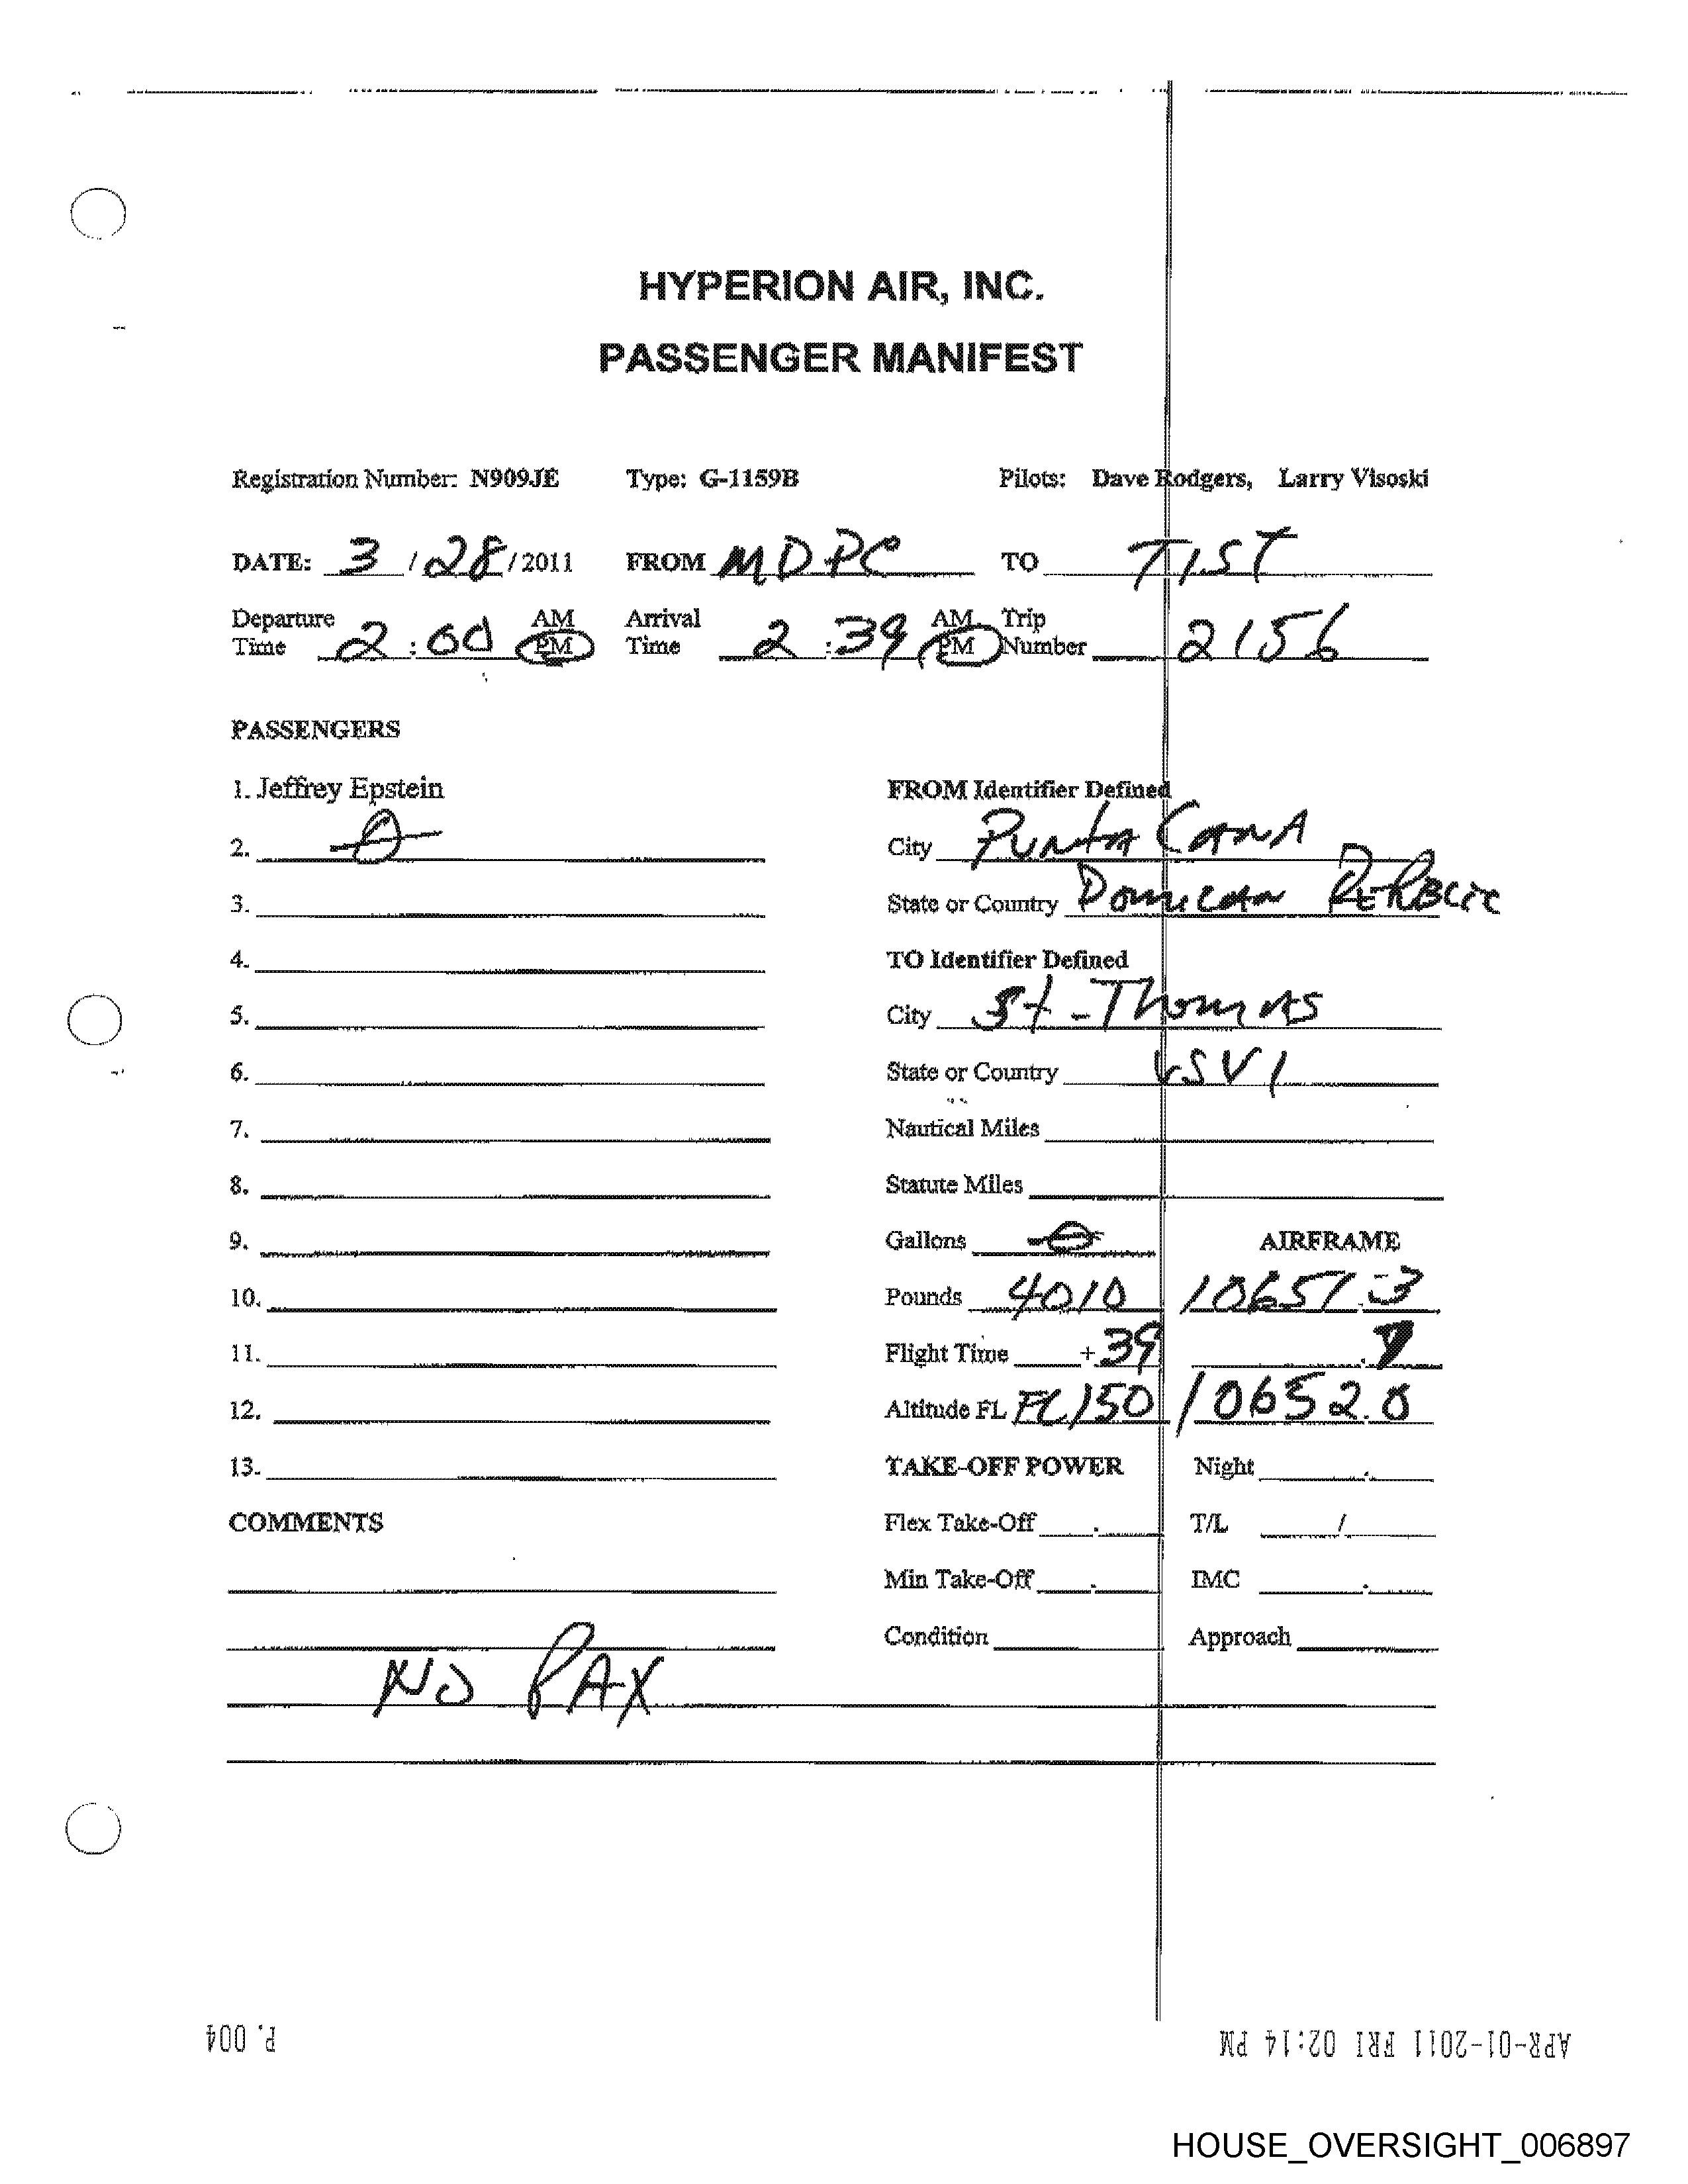 HYPERION AIR, INC.
PASSENGER MANIFEST
Registration Number: N909JE Type: G-1159B Pilots: Dave Rodgers, Larry Visoski
DATE: 3 / 28 / 2011 FROM MDPC TO TIST
Departure Time 2 : 00 AM PM Arrival Time 2 : 39 AM PM Trip Number 2156
PASSENGERS
1. Jeffrey Epstein FROM Identifier Defined
2. 0 City Punta Cana
3. State or Country Domican
4. TO Identifier Defined
5. City St-Thomas
6. State or Country USVI
7. Nautical Miles
8. Statute Miles
9. Gallons 0 AIRFRAME
10. Pounds 4010 10651.3
11. Flight Time + 39
12. Altitude FL FL150 10652.0
13. TAKE-OFF POWER Night .
COMMENTS Flex Take-Off . T/L /
Min Take-Off . IMC .
Condition Approach
NO PAX
P. 004
APR-01-2011 FRI 02:14 PM
HOUSE_OVERSIGHT_006897